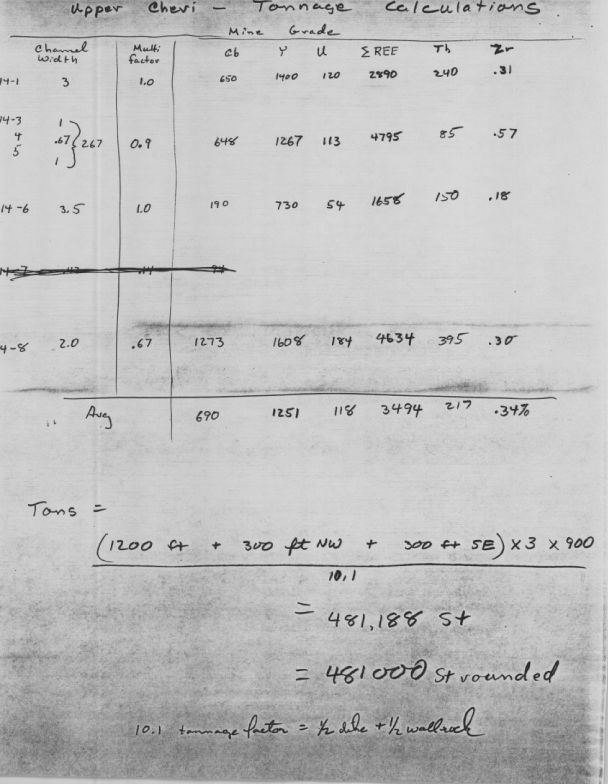 Upper Chevi — Tonnage Calculations
Mine Grade
Channel Width Multi factor Cb Y U Σ REE Th Zr
14-1 3 1.0 650 1400 120 2890 240 .31
14-3 1
4 .67 } 2.67 0.9 648 1267 113 4795 85 .57
5 1
14-6 3.5 1.0 190 730 54 1658 150 .18
4-8 2.0 .67 1273 1608 184 4634 395 .30
Avg 690 1251 118 3494 217 .34%
Tons =
(1200 ft + 300 ft NW + 300 ft SE) x 3 x 900
10.1
= 481,188 St
= 481000 St rounded
10.1 tonnage factor = ½ dike + ½ wallrock